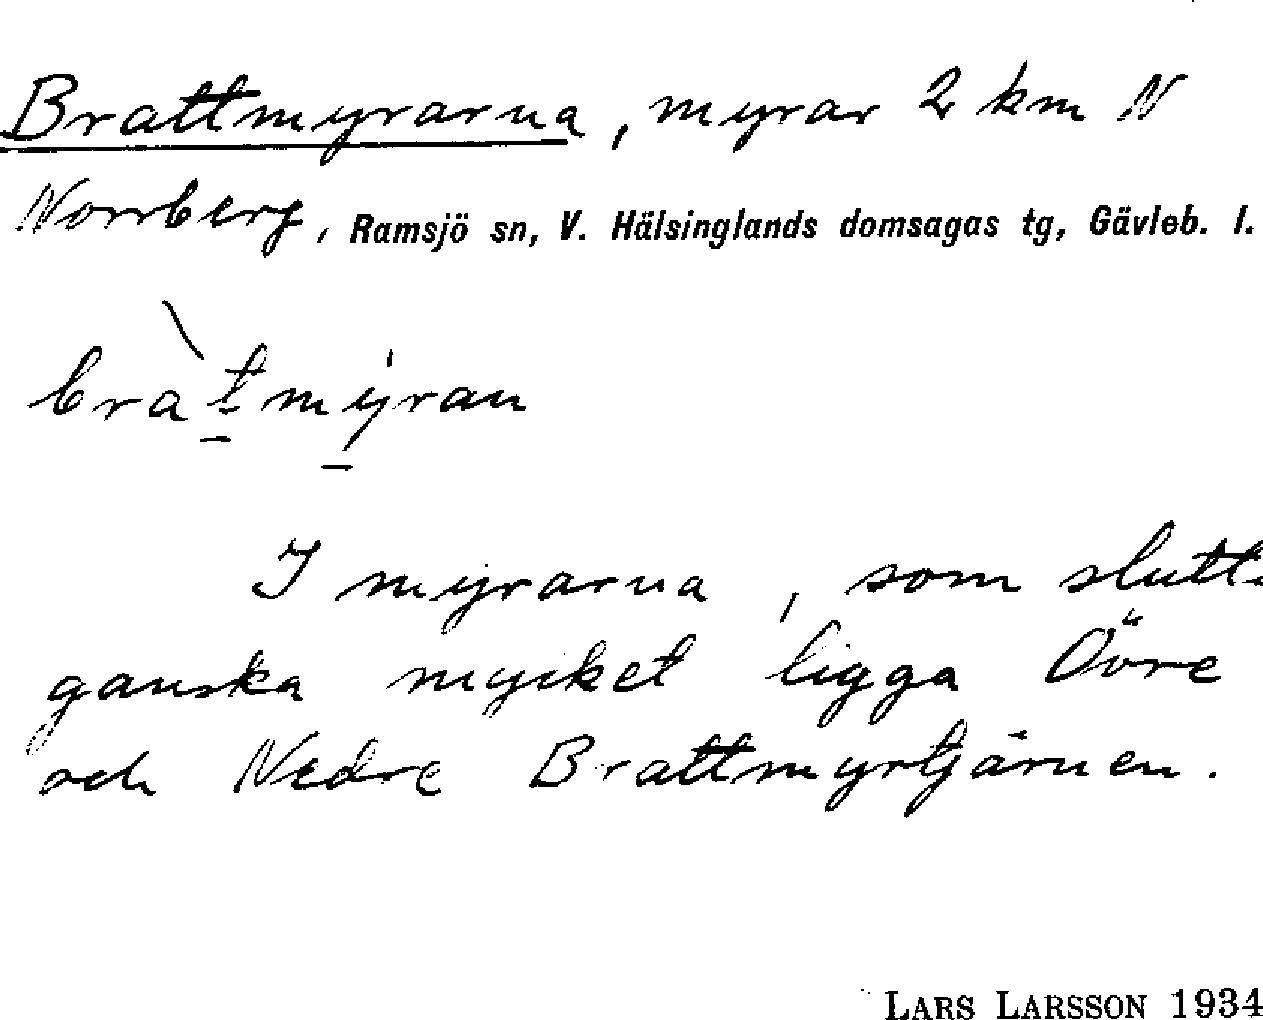 Brattmyrarna, myrar 2 km N
Norrberg, Ramsjö sn, V. Hälsinglands domsagas tg, Gävleb. l.
bràt̠mẏran
I myrarna, som slutta
ganska mycket ligga Övre
och Nedre Brattmyrtjärnen.
LARS LARSSON 1934